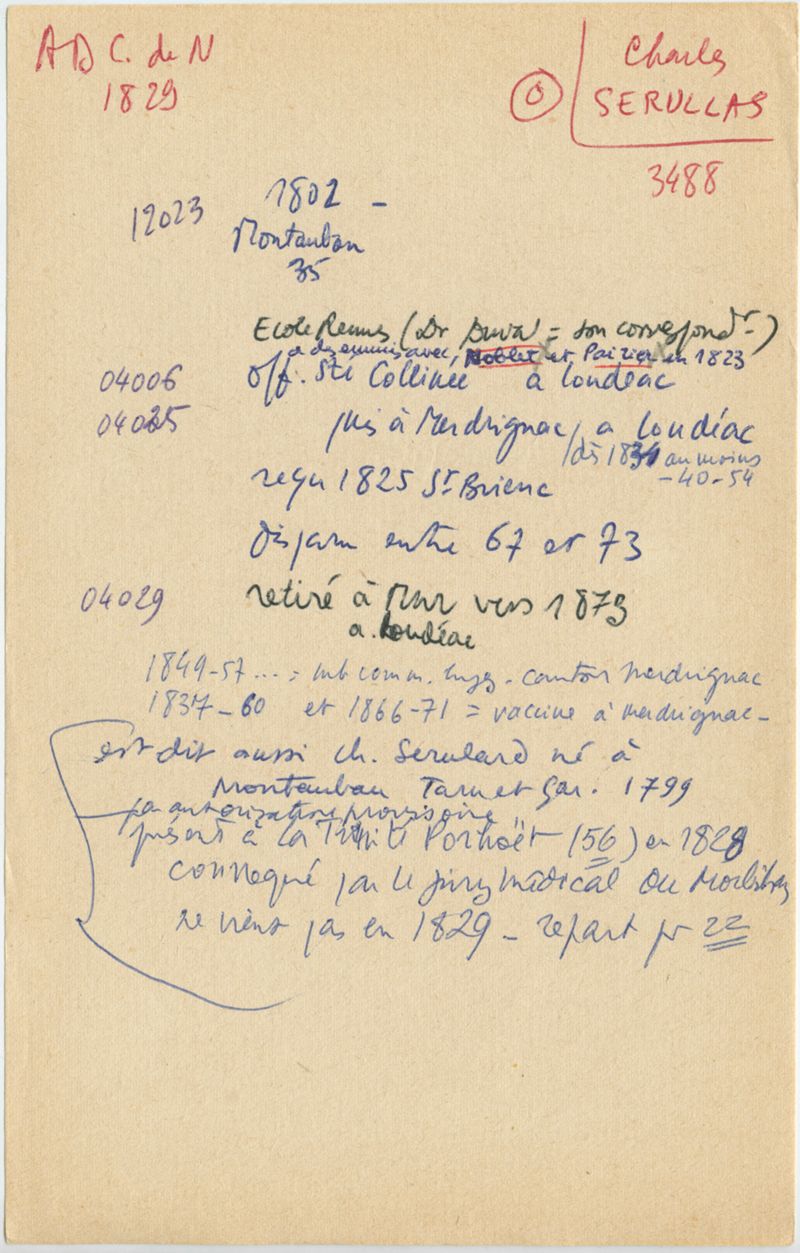 AD C. de N
1829
Charles
O SERULLAS
3488
12023 1802 -
Montauban
35
Ecole Rennes (Dr Duval = son correspondt)
a des ennuis avec, Noblet et Poirier en 1823
04006 off. Ste Collinée à Loudéac
04025 puis à Merdrignac, a Loudéac
dès 1831 au moins
- 40 - 54
reçu 1825 St Brieuc
disparu entre 67 et 73
04029 retiré à Mur vers 1873
a Loudéac
1849-57 ... = mb comm. hyg. canton Merdrignac
1837-60 et 1866-71 = vaccine à Merdrignac -
est dit aussi Ch. Serulard né à
Montauban Tarn et Gar. 1799
par autorisation provisoire
présent à la Trinité Porhoët (56) en 1828
convoqué par le jury médical du Morbihan
ne vient pas en 1829 - repart pr 22